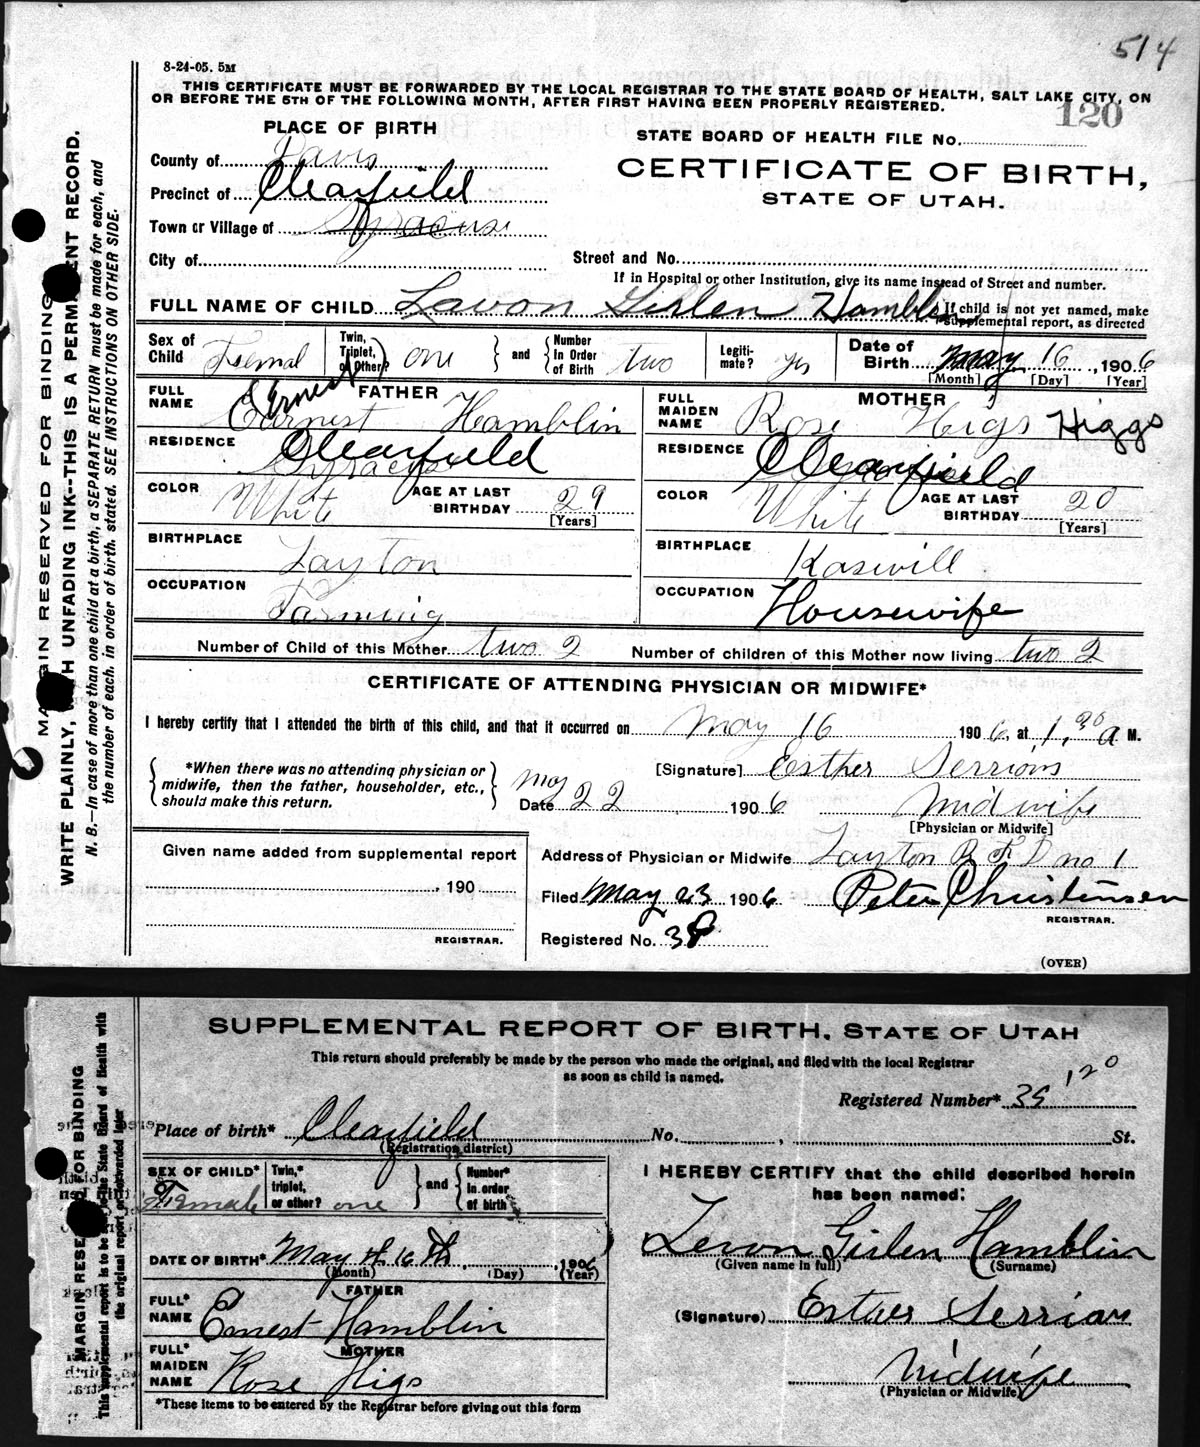 514
8-24-05. 5M
THIS CERTIFICATE MUST BE FORWARDED BY THE LOCAL REGISTRAR TO THE STATE BOARD OF HEALTH, SALT LAKE CITY, ON
OR BEFORE THE 5TH OF THE FOLLOWING MONTH, AFTER FIRST HAVING BEEN PROPERLY REGISTERED.
120
PLACE OF BIRTH
STATE BOARD OF HEALTH FILE No.
County of Davis
CERTIFICATE OF BIRTH,
Precinct of Clearfield
STATE OF UTAH.
Town or Village of Syracuse
City of
Street and No.
If in Hospital or other Institution, give its name instead of Street and number.
FULL NAME OF CHILD Lavon Girlen Hamblin
If child is not yet named, make supplemental report, as directed
Sex of Child Femal
Twin, Triplet, or Other? one and Number In Order of Birth two
Legitimate? yes
Date of Birth May 16, 1906
[Month] [Day] [Year]
FATHER
FULL NAME Earnest Ernest Hamblin
RESIDENCE Syracuse Clearfield
COLOR White
AGE AT LAST BIRTHDAY 29
[Years]
BIRTHPLACE Layton
OCCUPATION Farming
MOTHER
FULL MAIDEN NAME Rose Higs Higgs
RESIDENCE Clearfield
COLOR White
AGE AT LAST BIRTHDAY 20
[Years]
BIRTHPLACE Kasvill
OCCUPATION Housewife
Number of Child of this Mother two 2 Number of children of this Mother now living two 2
CERTIFICATE OF ATTENDING PHYSICIAN OR MIDWIFE*
I hereby certify that I attended the birth of this child, and that it occurred on May 16 1906, at 1.30 a M.
*When there was no attending physician or
midwife, then the father, householder, etc.,
should make this return.
[Signature] Esther Serrions
Date May 22 1906
Midwife
[Physician or Midwife]
Given name added from supplemental report
, 190
REGISTRAR.
Address of Physician or Midwife Layton R F D no 1
Filed May 23 1906 Peter Christensen
REGISTRAR.
Registered No. 38
(OVER)
MARGIN RESERVED FOR BINDING
WRITE PLAINLY, WITH UNFADING INK--THIS IS A PERMANENT RECORD.
N. B.—In case of more than one child at a birth, a SEPARATE RETURN must be made for each, and
the number of each, in order of birth, stated. SEE INSTRUCTIONS ON OTHER SIDE.
SUPPLEMENTAL REPORT OF BIRTH, STATE OF UTAH
This return should preferably be made by the person who made the original, and filed with the local Registrar
as soon as child is named.
120
Registered Number* 38
Place of birth* Clearfield No. , St.
(Registration district)
SEX OF CHILD* Female
Twin,* triplet, or other? one and Number* in order of birth
DATE OF BIRTH* May 16th, 1906
(Month) (Day) (Year)
FATHER
FULL* NAME Ernest Hamblin
MOTHER
FULL* MAIDEN NAME Rose Higs
*These items to be entered by the Registrar before giving out this form
I HEREBY CERTIFY that the child described herein
has been named:
Levon Girlen Hamblin
(Given name in full) (Surname)
(Signature) Esther Serrion
Midwife
(Physician or Midwife)
MARGIN RESERVED FOR BINDING
This supplemental report is to be filed with the State Board of Health with
the original report or forwarded later